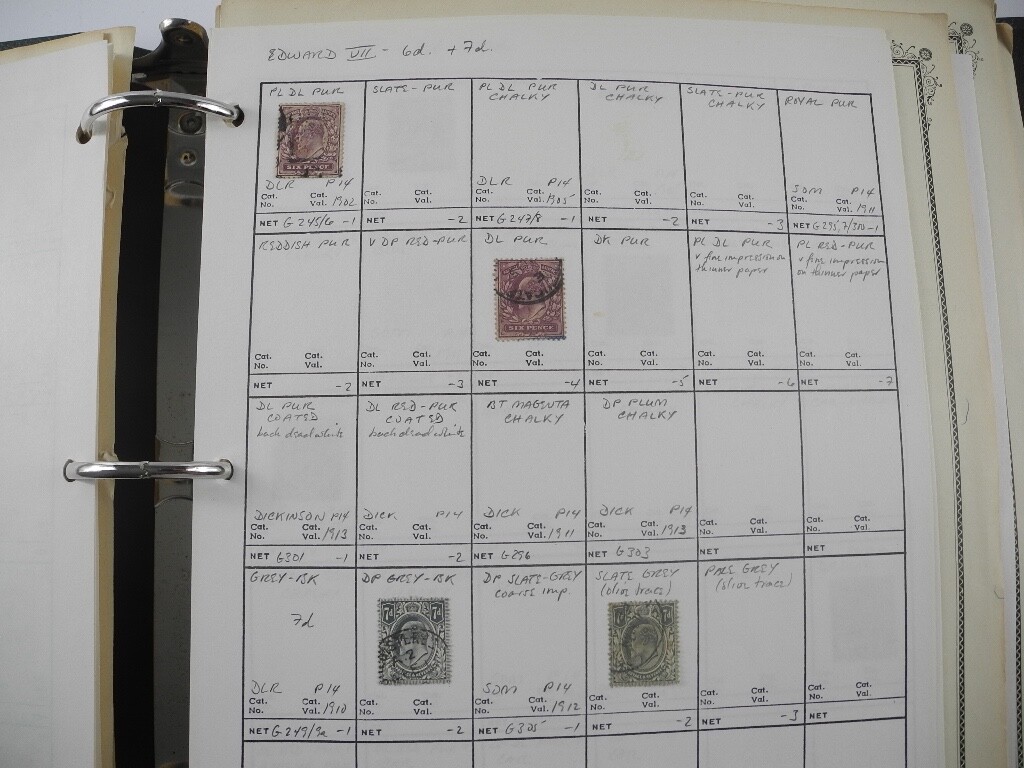 EDWARD VII - 6d. + 7d.
PL DL PUR
SIX PENCE
DLR P14
Cat. No. Cat. Val. 1902
NET G 245/6 -1
SLATE-PUR
Cat. No. Cat. Val.
NET -2
PL DL PUR
CHALKY
DLR P14
Cat. No. Cat. Val. 1905
NET G 247/8 -1
DL PUR
CHALKY
Cat. No. Cat. Val.
NET -2
SLATE-PUR
CHALKY
Cat. No. Cat. Val.
NET -3
ROYAL PUR
SOM P14
Cat. No. Cat. Val. 1911
NET G295,7/300-1
REDDISH PUR
Cat. No. Cat. Val.
NET -2
V DP RED-PUR
Cat. No. Cat. Val.
NET -3
DL PUR
SIX PENCE
Cat. No. Cat. Val.
NET -4
DK PUR
Cat. No. Cat. Val.
NET -5
PL DL PUR
v fine impression on
thinner paper
Cat. No. Cat. Val.
NET -6
PL RED-PUR
v fine impression
on thinner paper
Cat. No. Cat. Val.
NET -7
DL PUR
COATED
back dead white
DICKINSON P14
Cat. No. Cat. Val. 1913
NET G301 -1
DL RED-PUR
COATED
back dead white
DICK P14
Cat. No. Cat. Val.
NET -2
BT MAGENTA
CHALKY
DICK P14
Cat. No. Cat. Val. 1911
NET G296
DP PLUM
CHALKY
DICK P14
Cat. No. Cat. Val. 1913
NET G303
Cat. No. Cat. Val.
NET
Cat. No. Cat. Val.
NET
GREY-BK
7d
DLR P14
Cat. No. Cat. Val. 1910
NET G249/9a -1
DP GREY-BK
7d 7d
Cat. No. Cat. Val.
NET -2
DP SLATE-GREY
coarse imp.
SOM P14
Cat. No. Cat. Val. 1912
NET G305 -1
SLATE GREY
(olive trace)
Cat. No. Cat. Val.
NET -2
PALE GREY
(olive trace)
Cat. No. Cat. Val.
NET -3
Cat. No. Cat. Val.
NET